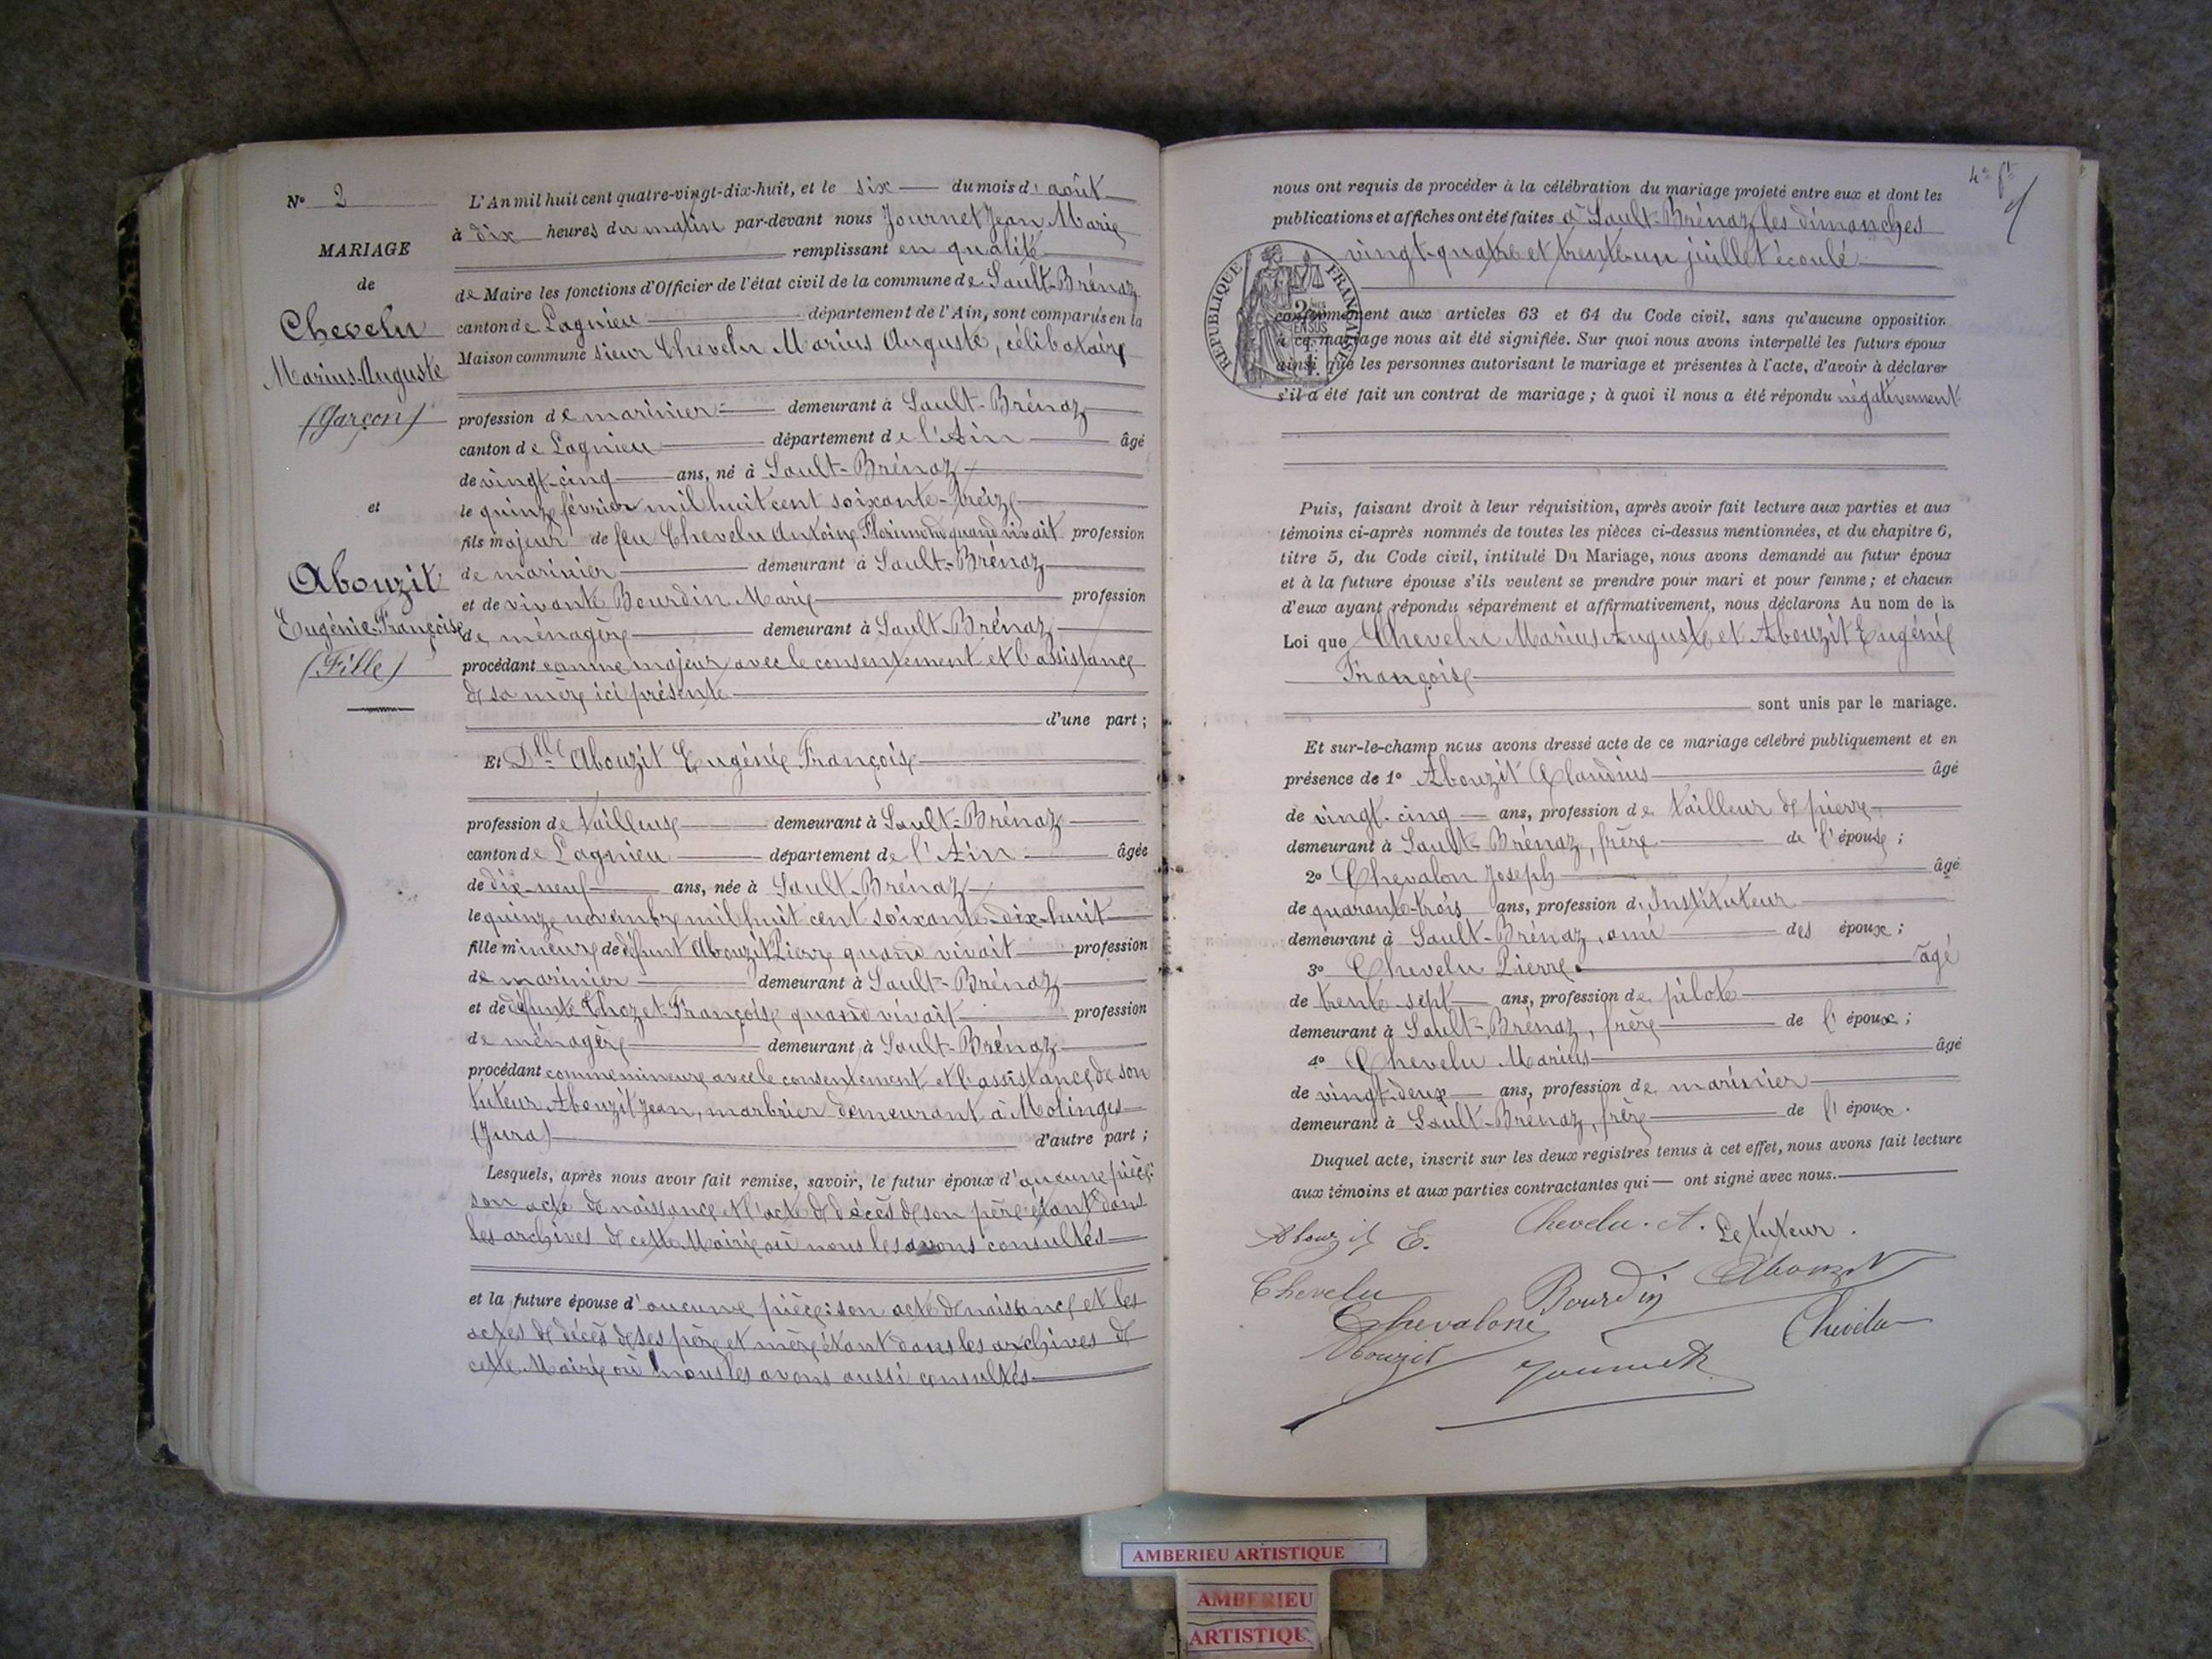 N° 2
MARIAGE
de
Chevelu
Marius-Auguste
(Garçon)
et
Abouzit
Eugénie-Françoise
(Fille)
L'An mil huit cent quatre-vingt-dix-huit, et le six du mois d'août
à dix heures du matin par-devant nous Journet Jean Marie
remplissant en qualité
de Maire les fonctions d'Officier de l'état civil de la commune de Sault-Brénaz
canton de Lagnieu département de l'Ain, sont comparus en la
Maison commune sieur Chevelu Marius Auguste, célibataire
profession de marinier demeurant à Sault-Brénaz
canton de Lagnieu département de l'Ain âgé
de vingt-cinq ans, né à Sault-Brénaz
le quinze février mil huit cent soixante-treize
fils majeur de feu Chevelu Antoine Florimond quand vivait profession
de marinier demeurant à Sault-Brénaz
et de vivante Bourdin Marie profession
de ménagère demeurant à Sault-Brénaz
procédant comme majeur avec le consentement et l'assistance
de sa mère ici présente
d'une part ;
Et Dlle Abouzit Eugénie Françoise
profession de tailleuse demeurant à Sault-Brénaz
canton de Lagnieu département de l'Ain âgée
de dix-neuf ans, née à Sault-Brénaz
le quinze novembre mil huit cent soixante-dix-huit
fille mineure de défunt Abouzit Pierre quand vivait profession
de marinier demeurant à Sault-Brénaz
et de défunte Chozet Françoise quand vivait profession
de ménagère demeurant à Sault-Brénaz
procédant comme mineure avec le consentement et l'assistance de son
tuteur Abouzit Jean, marbrier demeurant à Molinges
(Jura) d'autre part ;
Lesquels, après nous avoir fait remise, savoir, le futur époux d'aucune pièce:
son acte de naissance et l'acte de décès de son père étant dans
les archives de cette Mairie où nous les avons consultés
et la future épouse d'aucune pièce: son acte de naissance et les
actes de décès de ses père et mère étant dans les archives de
cette Mairie où nous les avons aussi consultés
4e ft
nous ont requis de procéder à la célébration du mariage projeté entre eux et dont les
publications et affiches ont été faites à Sault-Brénaz les dimanches
vingt-quatre et trente-un juillet écoulé
RÉPUBLIQUE FRANÇAISE
conformément aux articles 63 et 64 du Code civil, sans qu'aucune opposition
à ce mariage nous ait été signifiée. Sur quoi nous avons interpellé les futurs époux
ainsi que les personnes autorisant le mariage et présentes à l'acte, d'avoir à déclarer
s'il a été fait un contrat de mariage ; à quoi il nous a été répondu négativement
Puis, faisant droit à leur réquisition, après avoir fait lecture aux parties et aux
témoins ci-après nommés de toutes les pièces ci-dessus mentionnées, et du chapitre 6,
titre 5, du Code civil, intitulé Du Mariage, nous avons demandé au futur époux
et à la future épouse s'ils veulent se prendre pour mari et pour femme ; et chacun
d'eux ayant répondu séparément et affirmativement, nous déclarons Au nom de la
Loi que Chevelu Marius Auguste et Abouzit Eugénie
Françoise
sont unis par le mariage.
Et sur-le-champ nous avons dressé acte de ce mariage célébré publiquement et en
présence de 1° Abouzit Claudius âgé
de vingt-cinq ans, profession de tailleur de pierre
demeurant à Sault-Brénaz, frère de l'épouse ;
2° Chevalon Joseph âgé
de quarante-trois ans, profession d'Instituteur
demeurant à Sault-Brénaz, ami des époux ;
3° Chevelu Pierre âgé
de trente-sept ans, profession de pilote
demeurant à Sault-Brénaz, frère de l'époux ;
4° Chevelu Marius âgé
de vingt-deux ans, profession de marinier
demeurant à Sault-Brénaz, frère de l'époux.
Duquel acte, inscrit sur les deux registres tenus à cet effet, nous avons fait lecture
aux témoins et aux parties contractantes qui — ont signé avec nous.
Abouzit E. Chevelu. A. Le tuteur.
Chevelu Bourdin Abouzit
Chevalon Chevelu
Abouzit Journet
AMBERIEU ARTISTIQUE
AMBERIEU
ARTISTIQUE